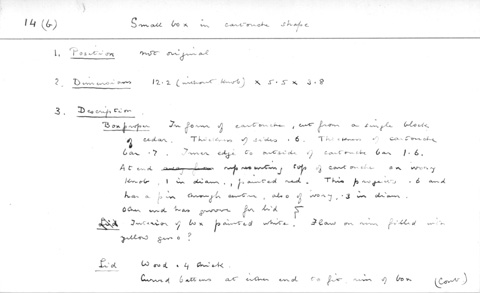 14 (b) Small box in cartouche shape
1. Position not original
2. Dimensions 12.2 (without knob) x 5.5 x 3.8
3. Description
Box proper In form of cartouche, cut from a single block
of cedar. Thickness of sides .6. Thickness of cartouche
bar .7. Inner edge to outside of cartouche bar 1.6.
At end representing top of cartouche an ivory
knob, 1 in diam., painted red. This projects .6 and
has a pin through centre, also of ivory, .3 in diam.
Other end has groove for lid
Interior of box painted white. Flaw on rim filled with
yellow gesso?
Lid Wood .4 thick.
Curved battens at either end to fit rim of box (Cont)